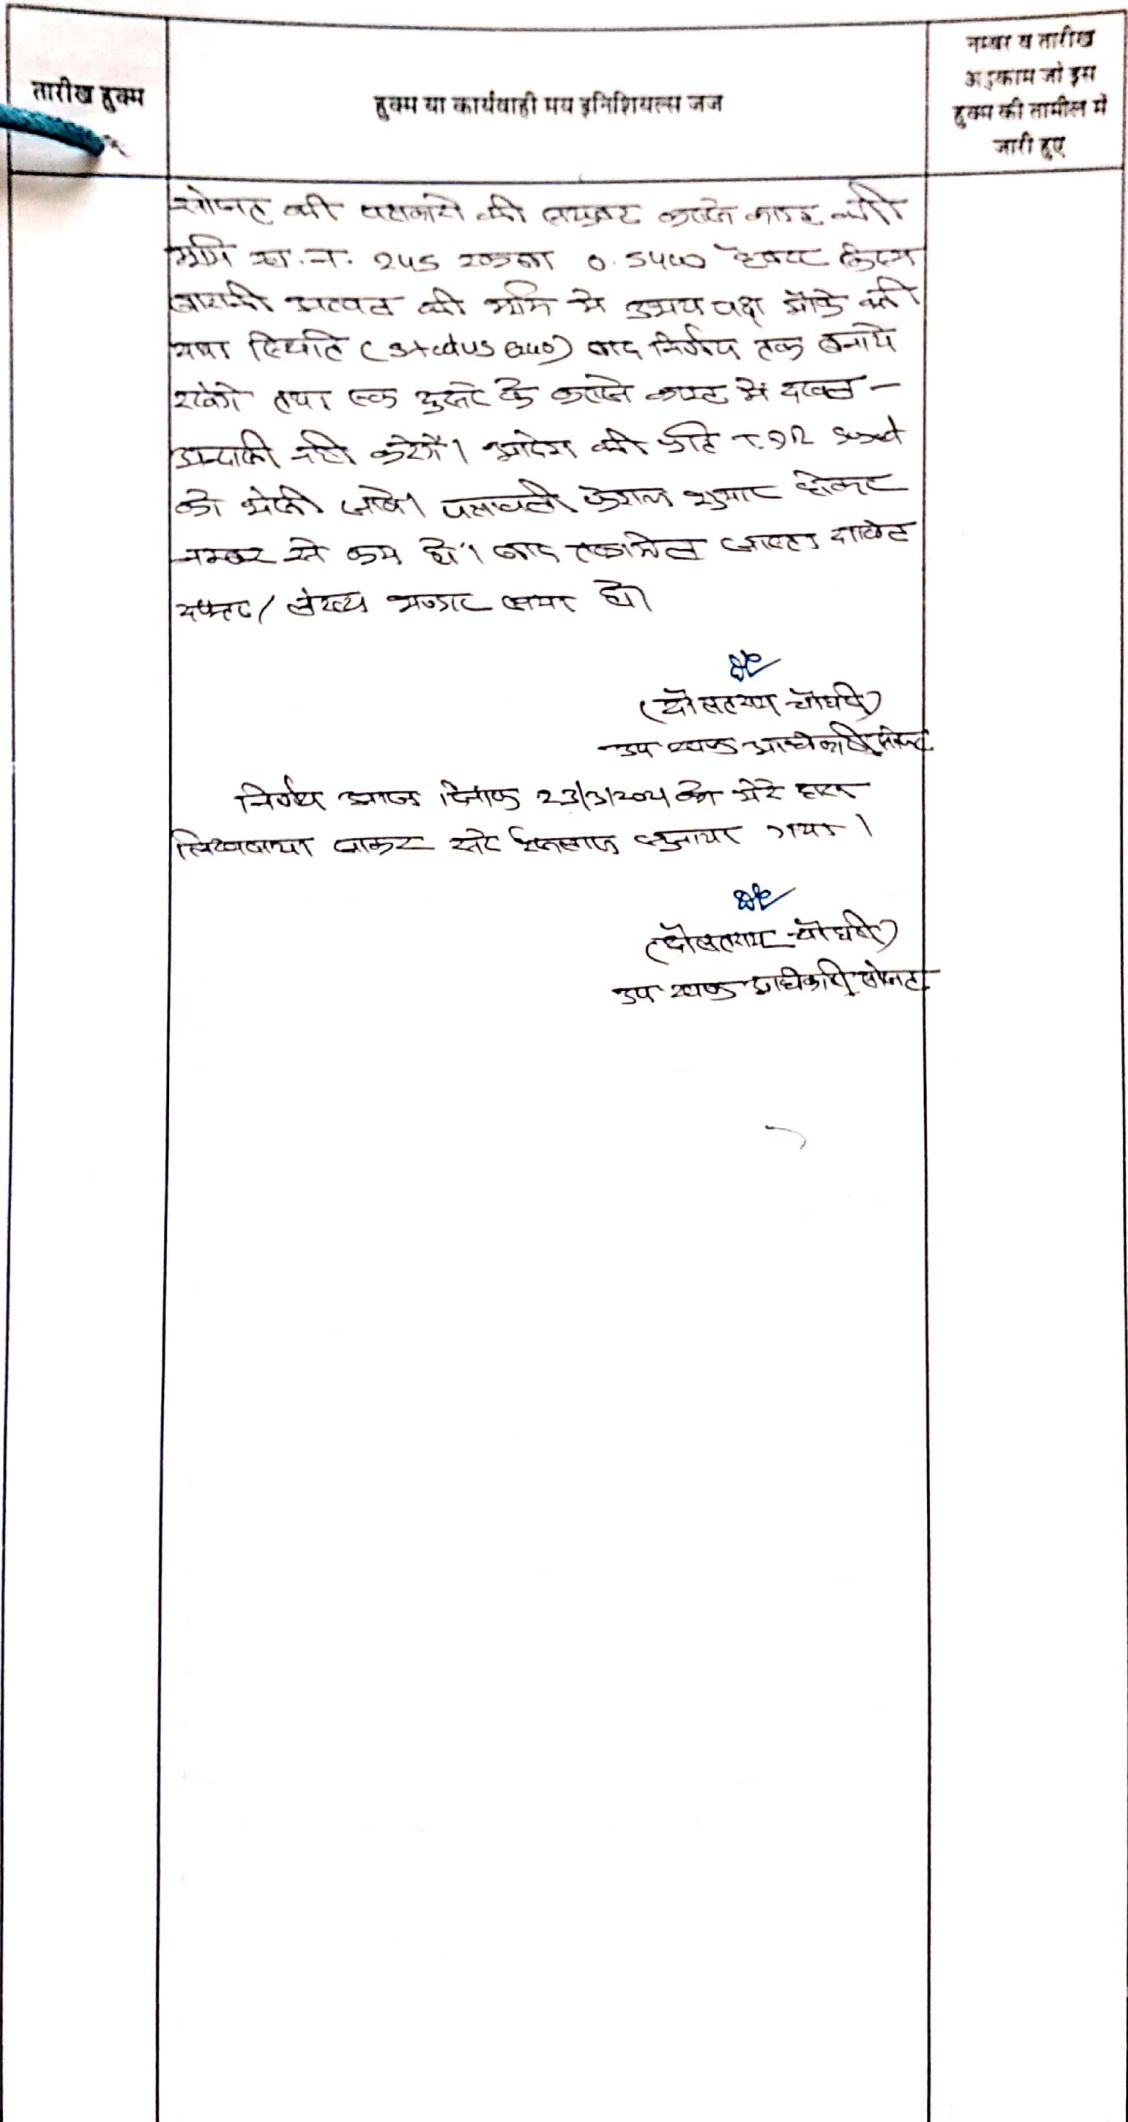 तारीख हुक्म
हुक्म या कार्यवाही मय इनिशियल्स जज
नम्बर व तारीख
अहकाम जो इस
हुक्म की तामील में
जारी हुए
सोजत की पक्षकारो की संयुक्त काश्त की
भूमि ख.न. 245 रकबा 0.5400 हैक्टर किस्म
की भूमि में उभय पक्ष मौके की
यथा स्थिति (Status Quo) वाद निर्णय तक बनाये
रखेगे तथा एक दुसरे के काश्त में दखल -
अन्दाजी नही करेगें। आदेश की प्रति T.DR सोजत
को भेजी जावे। पत्रावली फैसल शुमार होकर
नम्बर से कम हो। बाद तकमील जाब्ता दाखिल
दफ्तर / लेख्य भण्डार जमा हो।
(दौलतराम चौधरी)
उप खण्ड अधिकारी, सोजत
निर्णय आज दिनांक 23/3/2021 को मेरे द्वारा
लिखवाया जाकर सरे इजलास सुनाया गया।
(दौलतराम चौधरी)
उप खण्ड अधिकारी, सोजत